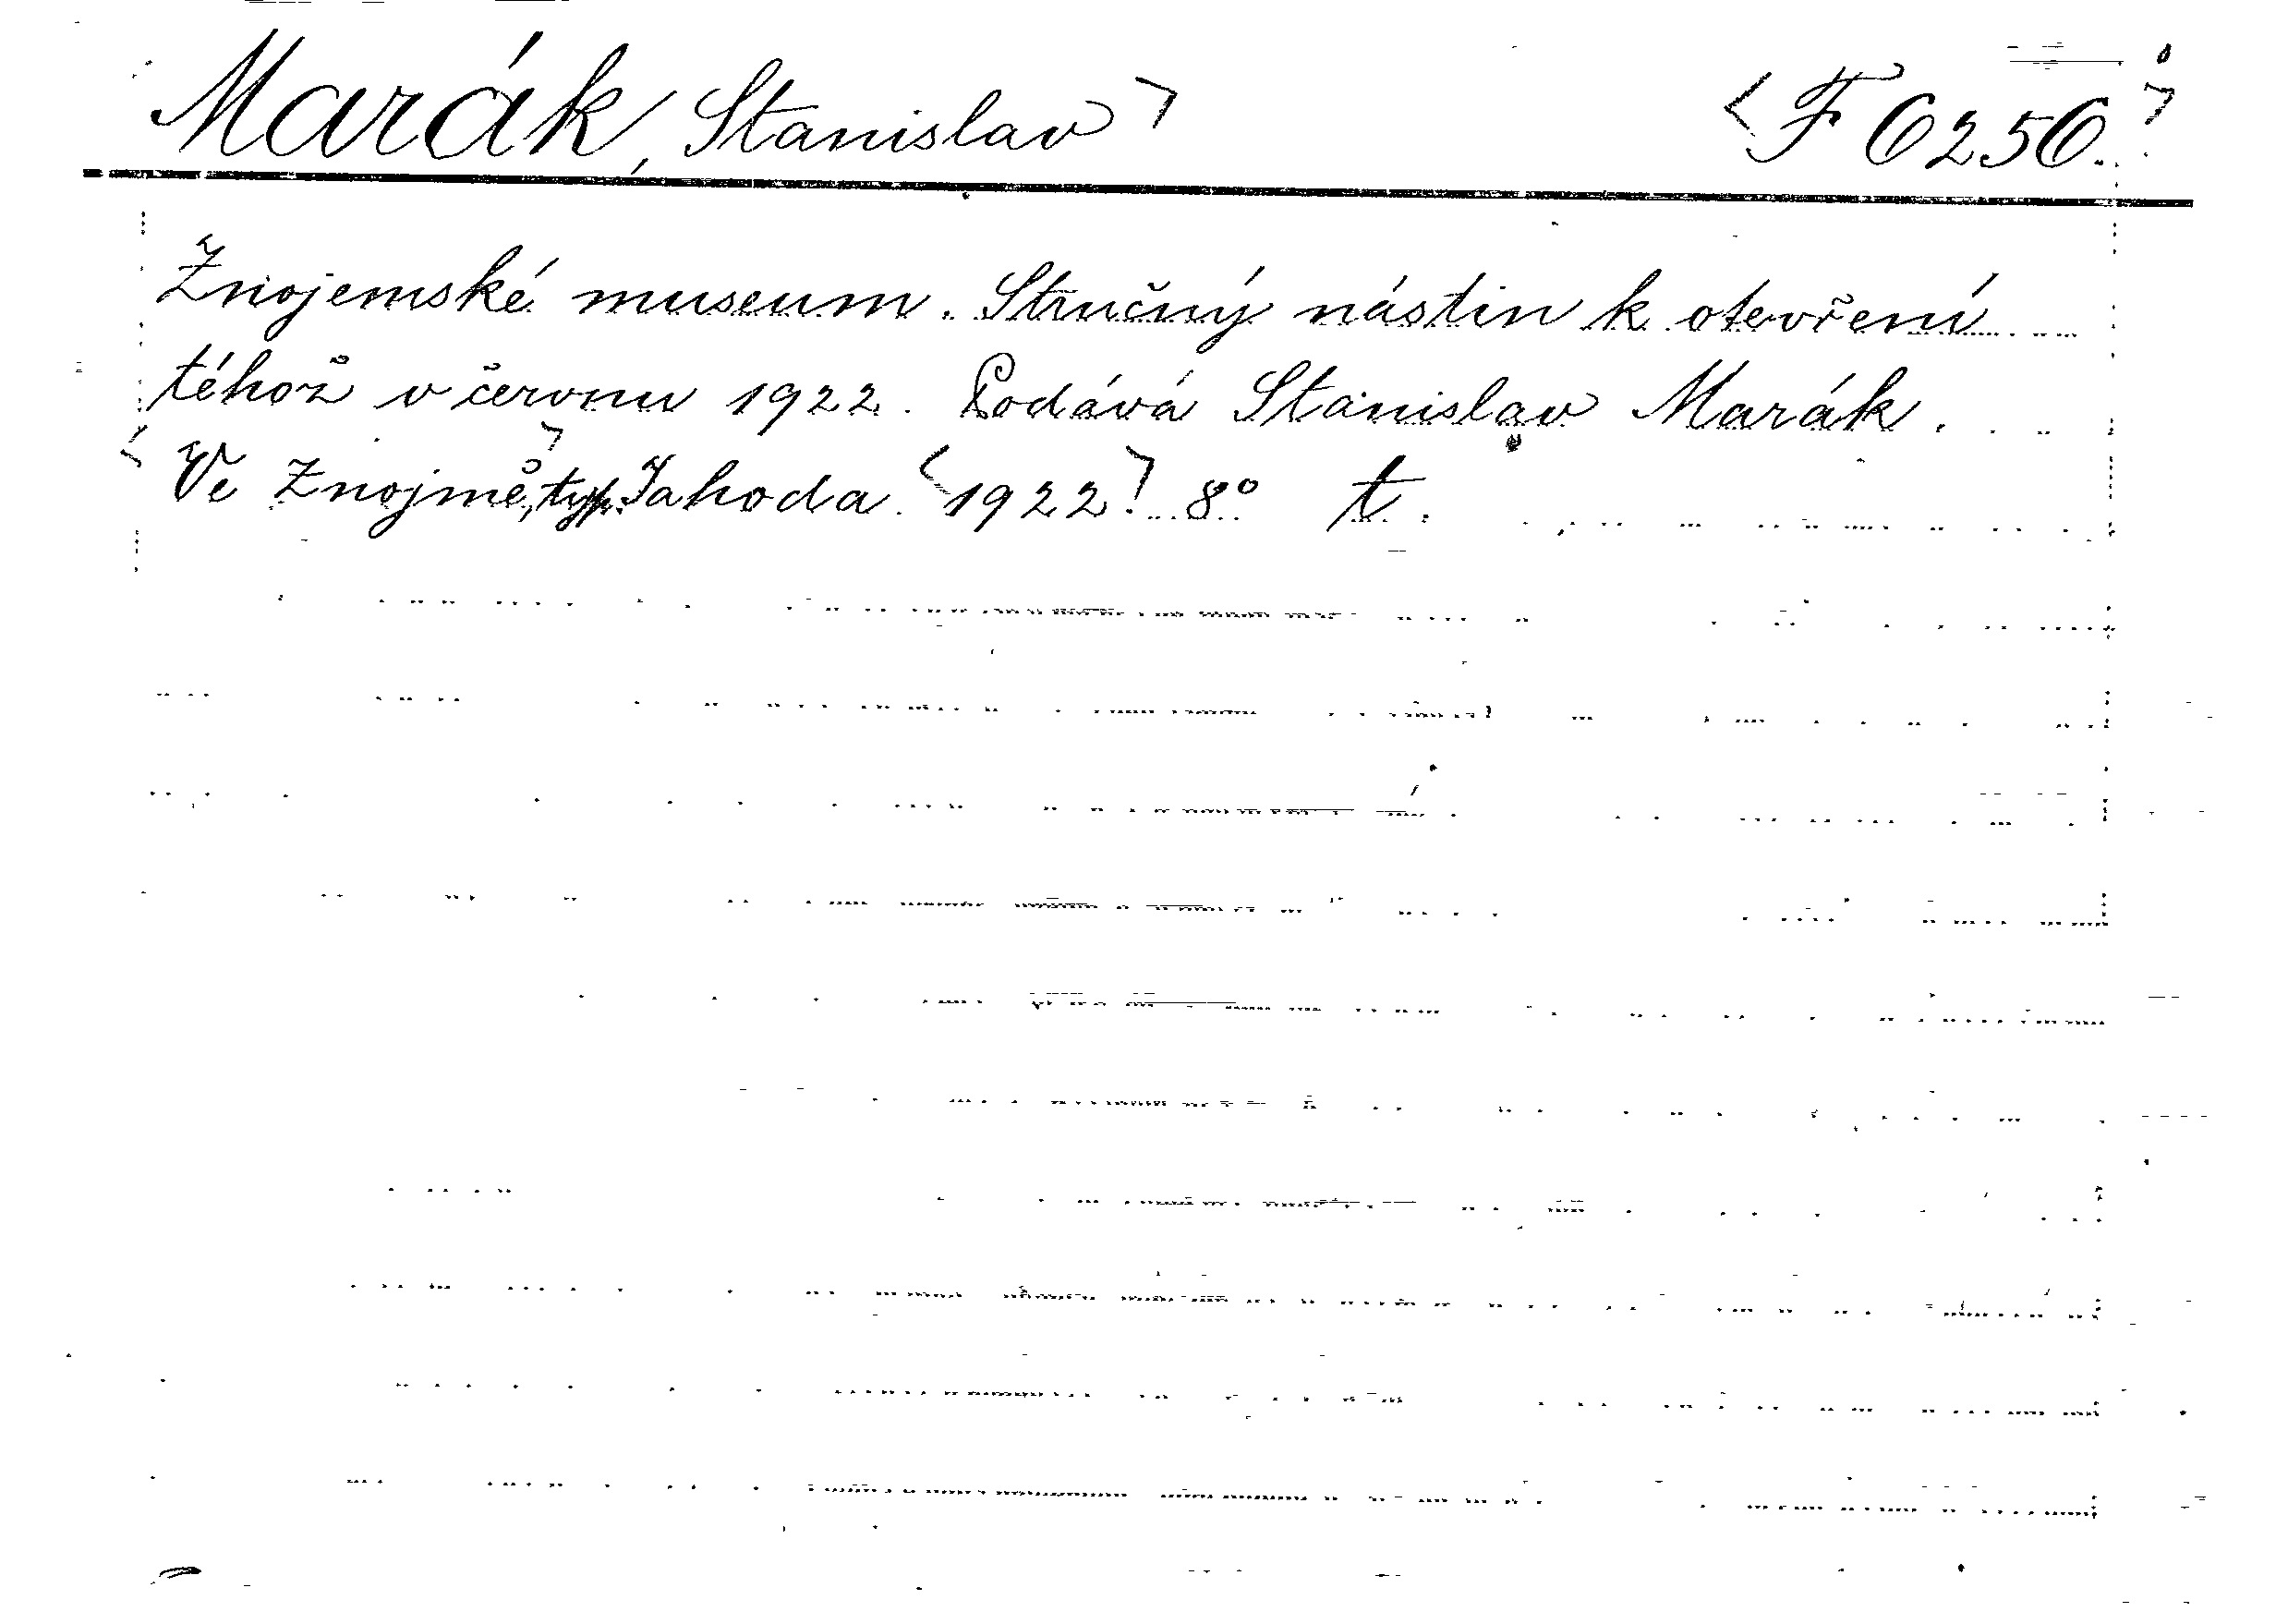 Marák, Stanislav> <F 6256.>
Znojemské museum. Stručný nástin k otevření
téhož v červnu 1922. Podává Stanislav Marák.
<Ve Znojmě>, typ. Jahoda. <1922>. 8° t.